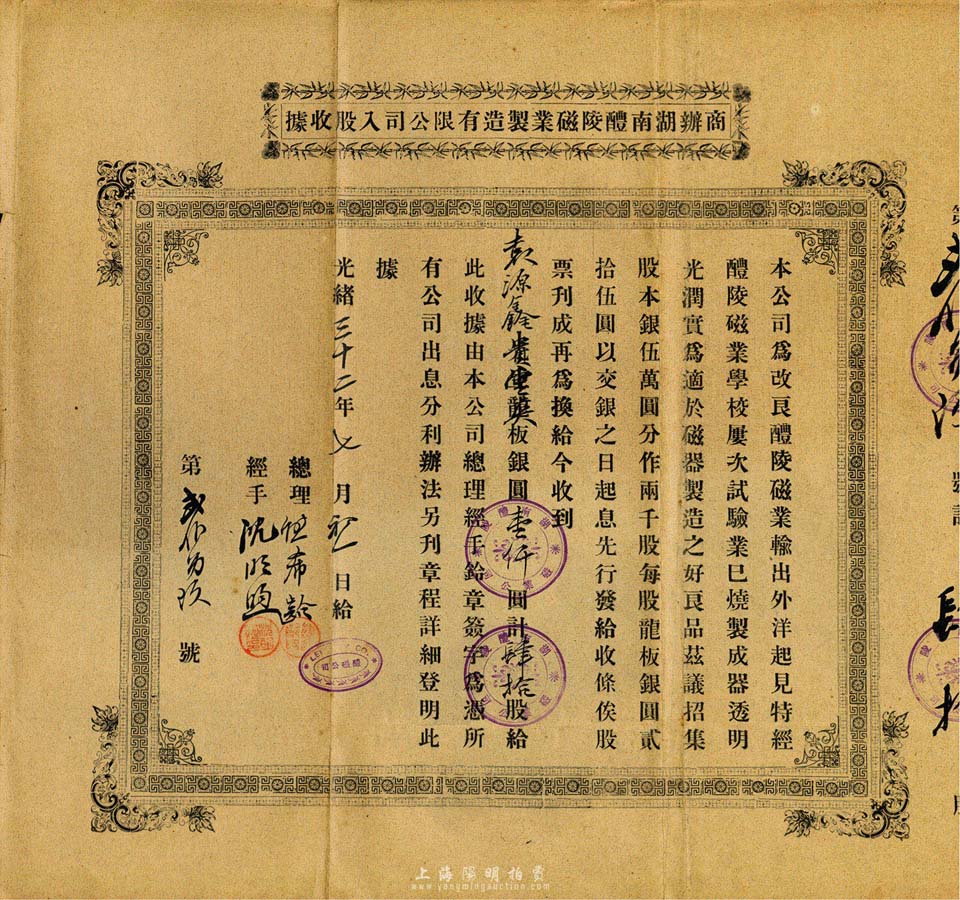 商辦湖南醴陵磁業製造有限公司入股收據
本公司為改良醴陵磁業輸出外洋起見特經
醴陵磁業學校屢次試驗業已燒製成器透明
光潤實為適於磁器製造之好良品茲議招集
股本銀伍萬圓分作兩千股每股龍板銀圓貳
拾伍圓以交銀之日起息先行發給收條俟股
票刊成再為換給今收到
袁源鑫 龍板銀圓壹仟圓計肆拾股給
此收據由本公司總理經手鈐章簽字為憑所
有公司出息分利辦法另刊章程詳細登明此
據
光緒三十二年七月初一日給
總理熊希齡
經手沈明煦
第 號
號
拾
股
上海陽明拍賣
www.yangmingauction.com